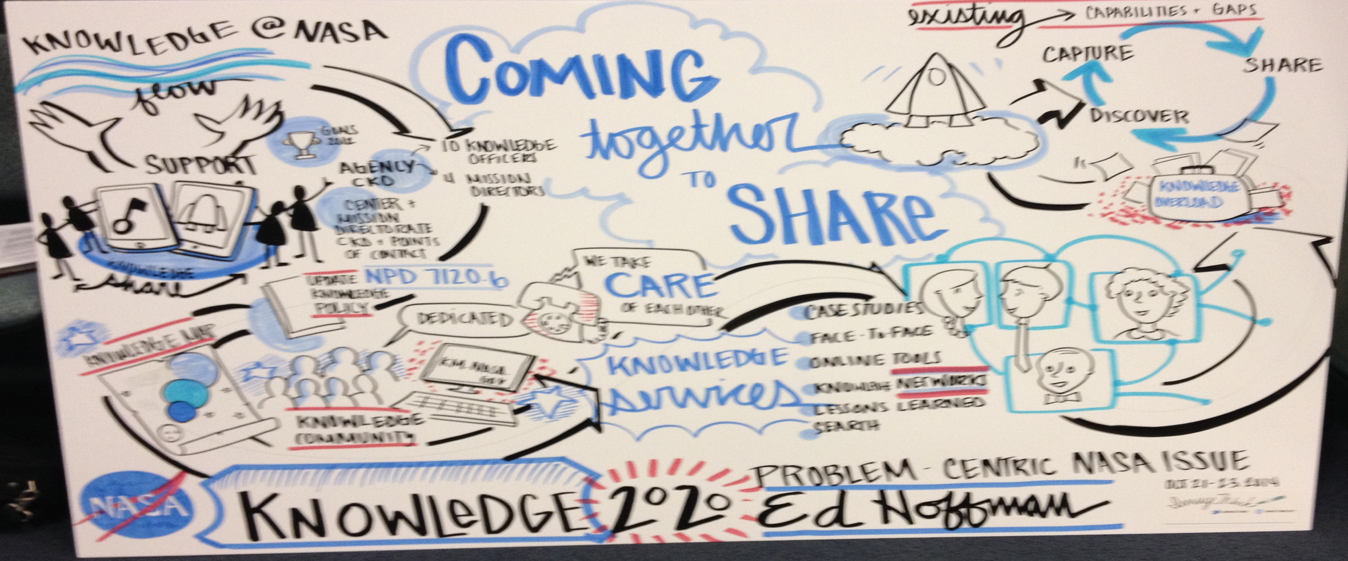 KNOWLEDGE @ NASA
flow
SUPPORT
KNOWLEDGE
share
GOALS
2012
AGENCY
CKO
10 KNOWLEDGE
OFFICERS
4 MISSION
DIRECTORS
CENTER +
MISSION
DIRECTORATE
CKO + POINTS
OF CONTACT
COMING
together
TO
SHARe
existing → CAPABILITIES + GAPS
CAPTURE
SHARE
DISCOVER
KNOWLEDGE
OVERLOAD
UPDATE NPD 7120.6
KNOWLEDGE
POLICY
DEDICATED
WE TAKE
CARE
OF EACH OTHER
KNOWLEDGE MAP
KNOWLEDGE
COMMUNITY
KM.NASA.
GOV
KNOWLEDGE
services
CASE STUDIES
FACE-TO-FACE
ONLINE TOOLS
KNOWLEDGE NETWORKS
LESSONS LEARNED
SEARCH
NASA
KNOWLeDGE 2020
PROBLEM-CENTRIC NASA ISSUE
Ed Hoffman
OCT 21-23.2014